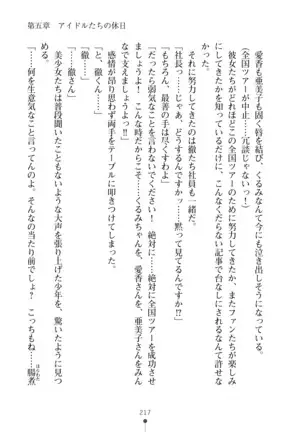 第五章　アイドルたちの休日
愛香も亜美子も固く唇を結び、くるみなんて今にも泣き出しそうになっている。
（全国ツアーが中止……冗談じゃないっ！）
彼女たちがどれほどこの全国ツアーのために努力してきたか、またファンたちが楽しみにしてきたかを知っているだけに、こんなくだらない記事で台なしにされるなんて許せない。それは徹たち社員も一緒だ。
「社長っ……じゃあ、どうするんですかっ……黙って見てるんですか」
「……もちろん、最善の手は尽くすわよ」
「だったら弱気なことを言わないでください！　絶対に……絶対に全国ツアーを成功させましょうよ！　こんな時だからこそ……くるみちゃんを、愛香さんを、亜美子さんをみんなで支えましょう！」
感情が昂ぶり思わず両手をテーブルに叩きつけてしまった。
「……徹さん」
「と、徹くん……」
美少女たちは普段聞いたこともないような大声を張り上げた少年を、驚いたように見つめた。
「……何を生意気なこと言ってんのよ。そんなの当たり前でしょ？　こっちもね……腸煮
はらわた
217